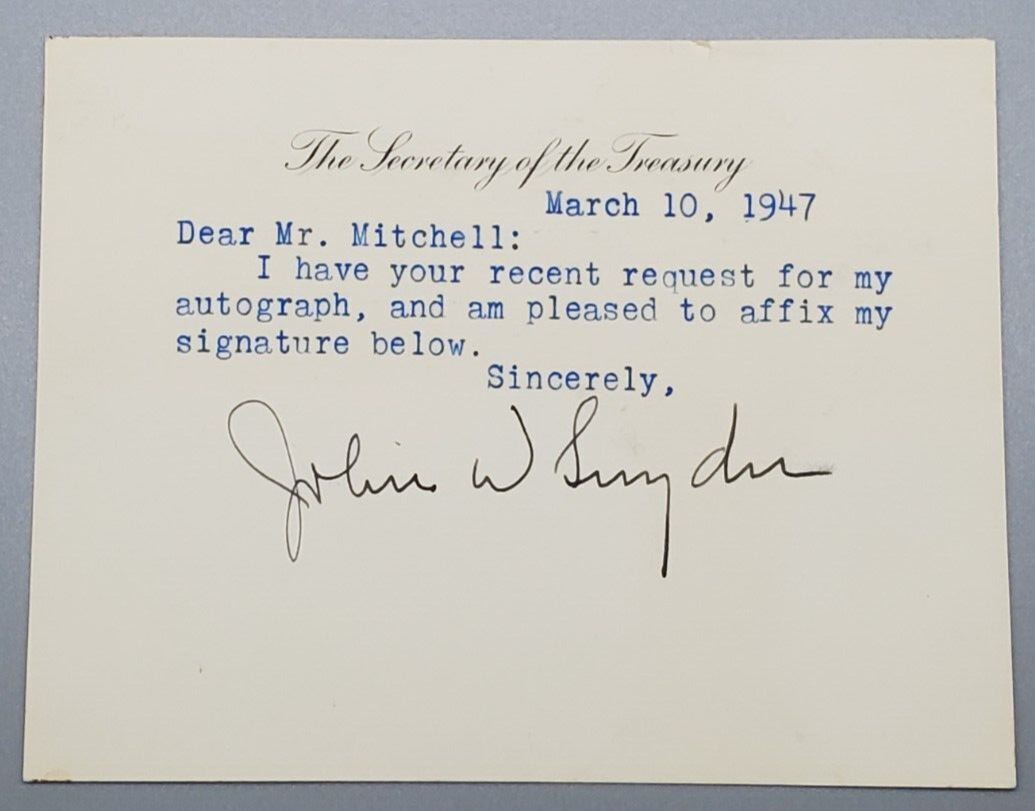 The Secretary of the Treasury
March 10, 1947
Dear Mr. Mitchell:
I have your recent request for my
autograph, and am pleased to affix my
signature below.
Sincerely,
John W Snyder